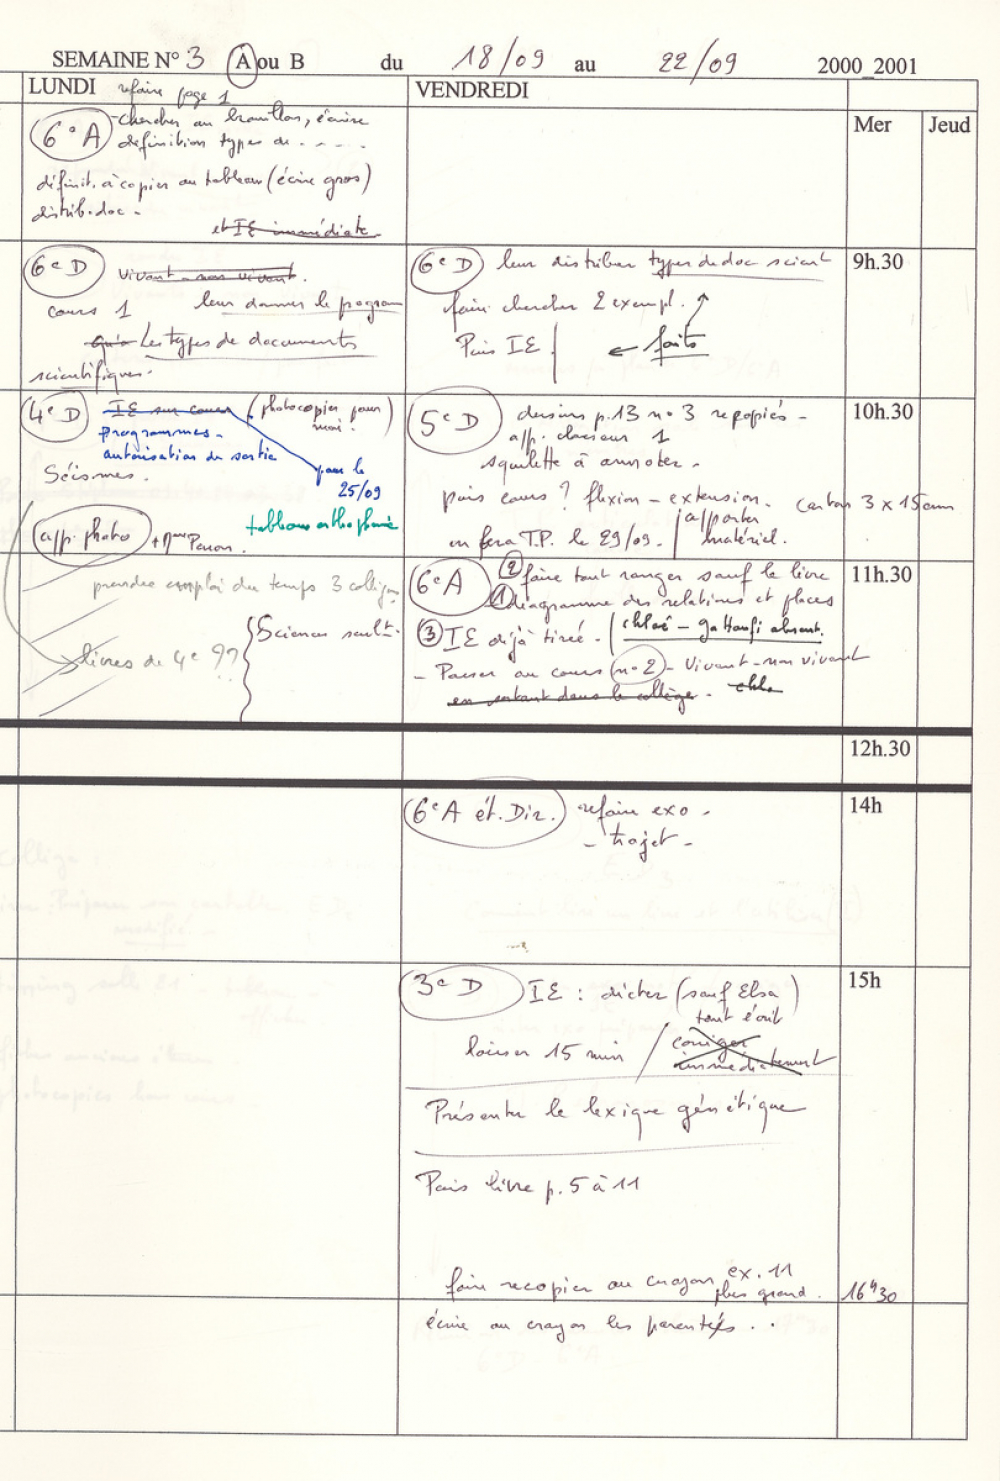 SEMAINE N° 3 A ou B du 18/09 au 22/09 2000_2001
LUNDI refaire page 1
VENDREDI
Mer Jeud
6°A - chercher au brouillon, écrire
définition types de . - . . .
définit. à copier au tableau (écrire gros)
distrib. doc -
et IE immédiate
6e D vivant - non vivant.
cours 1 leur donner le program
Les types de documents
scientifiques.
6e D leur distribuer types de doc scient
faire chercher 2 exempl.
Puis IE ← faits
9h.30
4e D IE sur cours (photocopier pour moi.)
programmes -
autorisation de sortie
pour le
25/09
Séismes.
tableau orthophonie
app. photo + Mme Perron.
5e D dessins p.13 n°3 recopiés -
app. classeur 1
squelette à annoter -
puis cours ? flexion - extension. carton 3 x 15 cm
on fera T.P. le 29/09. apporter
matériel.
10h.30
prendre emploi du temps 3 collègues
livres de 4e ??
6e A ② faire tout ranger sauf le livre
① diagramme des relations et places
③ IE déjà tirée - chloé - gattoufi absent.
- Passer au cours (n°2) - Vivant - non vivant
en entrant dans le collège. chloe
11h.30
12h.30
6e A ét. Dir. refaire exo -
- trajet -
14h
3e D IE : dicter (sauf Elsa)
tout écrit
laisser 15 min / corriger
immédiatement
Présenter le lexique génétique
Puis livre p. 5 à 11
faire recopier au crayon ex. 11
plus grand.
écrire au crayon les parentés . .
15h
16h30